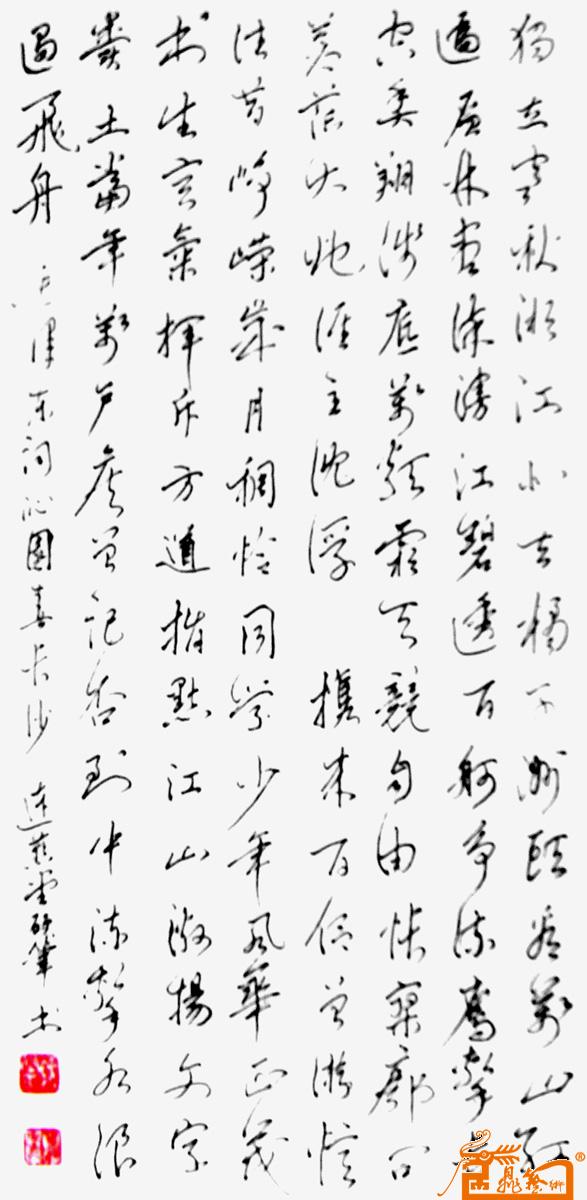 獨立寒秋湘江北去橘子洲頭看萬山紅
遍層林盡染漫江碧透百舸爭流鷹擊長
空魚翔淺底萬類霜天競自由悵寥廓問
蒼茫大地誰主沈浮 攜來百侶曾游憶
往昔崢嶸歲月稠恰同學少年風華正茂
书生意氣揮斥方遒指點江山激揚文字
糞土當年萬戶侯曾記否到中流擊水浪
遏飛舟 毛澤东詞沁園春长沙 硬筆书